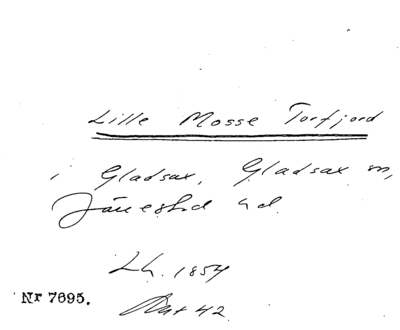 Lille Mosse Torfjord
i Gladsax, Gladsax sn,
Järrestad hd.
Lh. 1854
Nr 7695.
42